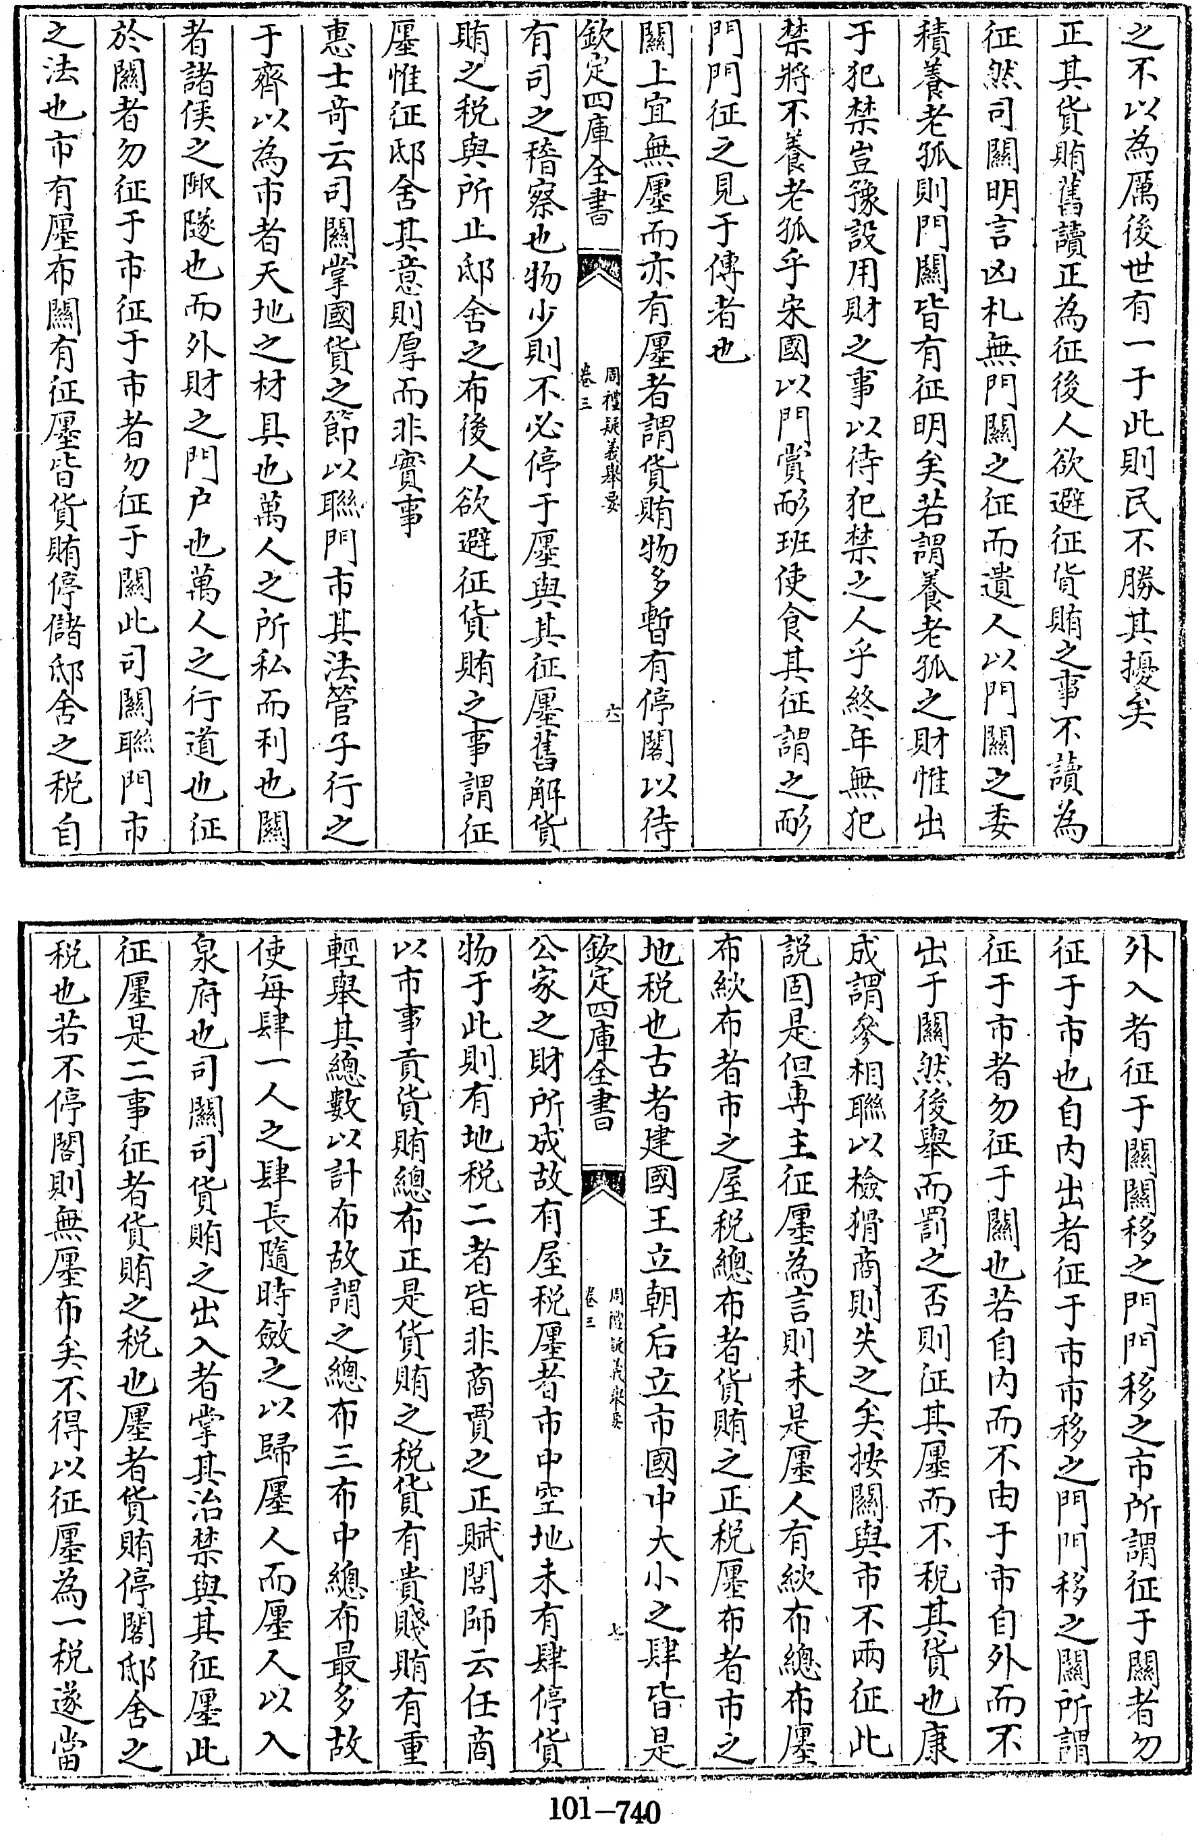 之不以為厲後世有一于此則民不勝其擾矣
正其貨賄舊讀正為征後人欲避征貨賄之事不讀為
征然司關明言凶札無門關之征而遺人以門關之委
積養老孤則門關皆有征明矣若謂養老孤之財惟出
于犯禁豈豫設用財之事以待犯禁之人乎終年無犯
禁將不養老孤乎宋國以門賞耏班使食其征謂之耏
門門征之見于傳者也
關上宜無廛而亦有廛者謂貨賄物多暫有停閣以待
欽定四庫全書
周禮疑義舉要
卷三
六
有司之稽察也物少則不必停于廛與其征廛舊解貨
賄之税與所止邸舍之布後人欲避征貨賄之事謂征
廛惟征邸舍其意則厚而非實事
惠士竒云司關掌國貨之節以聯門市其法管子行之
于齊以為市者天地之材具也萬人之所私而利也關
者諸侯之陬隧也而外財之門户也萬人之行道也征
於關者勿征于市征于市者勿征于關此司關聯門市
之法也市有廛布關有征廛皆貨賄停儲邸舍之税自
外入者征于關關移之門門移之市所謂征于關者勿
征于市也自内出者征于市市移之門門移之關所謂
征于市者勿征于關也若自内而不由于市自外而不
出于關然後舉而罰之否則征其廛而不税其貨也康
成謂參相聯以檢猾商則失之矣按關與市不兩征此
説固是但専主征廛為言則未是廛人有絘布總布廛
布絘布者市之屋税總布者貨賄之正税廛布者市之
地税也古者建國王立朝后立市國中大小之肆皆是
欽定四庫全書
周禮疑義舉要
卷三
七
公家之財所成故有屋税廛者市中空地未有肆停貨
物于此則有地税二者皆非商賈之正賦閭師云任商
以市事貢貨賄總布正是貨賄之税貨有貴賤賄有重
輕舉其總數以計布故謂之總布三布中總布最多故
使每肆一人之肆長隨時斂之以歸廛人而廛人以入
泉府也司關司貨賄之出入者掌其治禁與其征廛此
征廛是二事征者貨賄之税也廛者貨賄停閣邸舍之
税也若不停閣則無廛布矣不得以征廛為一税遂當
101-740